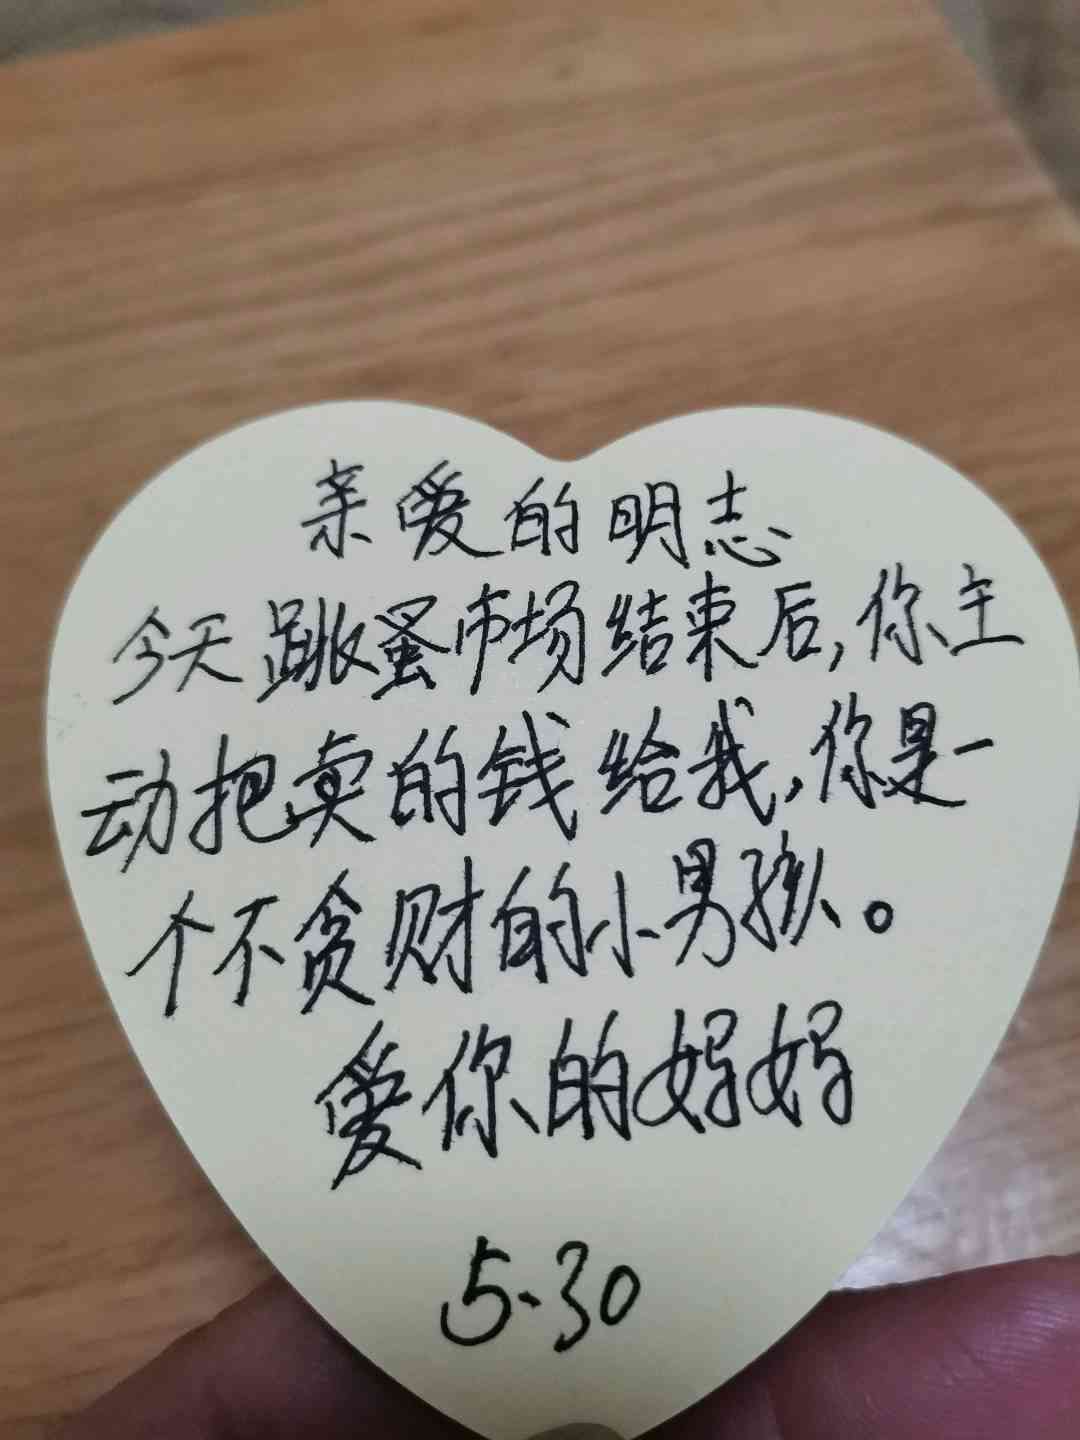 亲爱的明志
今天跳蚤市场结束后,你主
动把卖的钱给我,你是一
个不贪财的小男孩。
爱你的妈妈
5.30